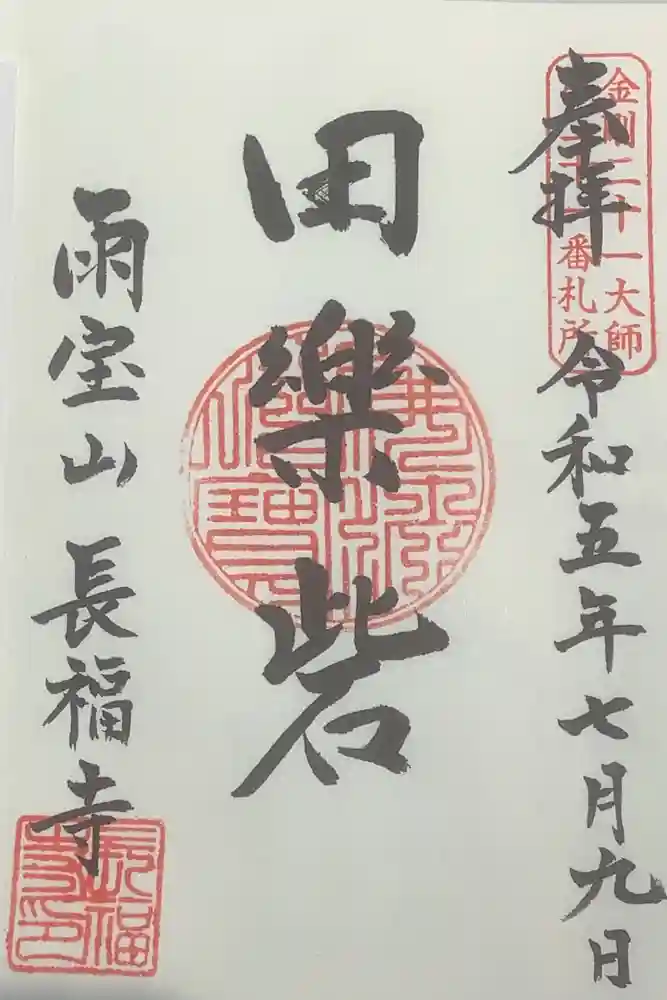 奉拝 令和五年七月九日
金剛二十一大師
番札所
田樂砦
雨宝山 長福寺
長福
寺印